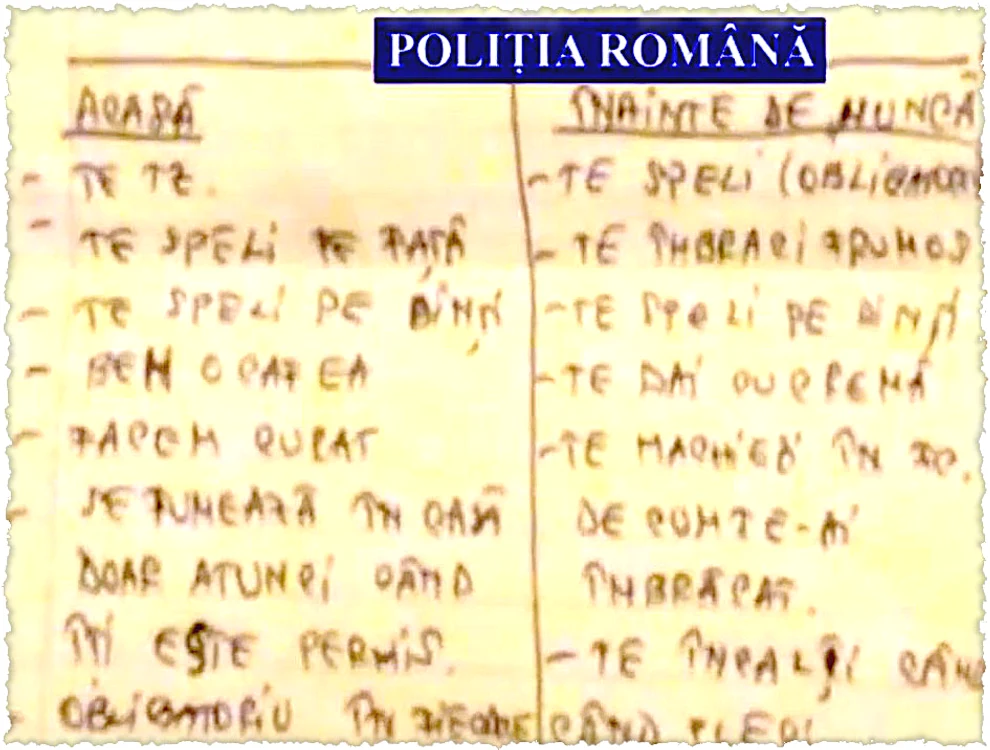 POLIȚIA ROMÂNĂ
ACASĂ
- TE TZ.
- TE SPELI PE FAȚĂ
- TE SPELI PE DINȚI
- BEM O CAFEA
- FACEM CURAT
- SE FUMEAZĂ ÎN CASĂ
DOAR ATUNCI CÂND
ÎȚI ESTE PERMIS.
- OBLIGATORIU ÎN
ÎNAINTE DE MUNCĂ
- TE SPELI (OBLIGATOR
- TE ÎMBRACI FRUMOS
- TE SPELI PE DINȚI
- TE DAI CU CREMĂ
- TE MACHIEZI ÎN
DE CUM TE-AI
ÎMBRĂCAT.
- TE ÎNCALȚI CÂND
CÂND PLECI